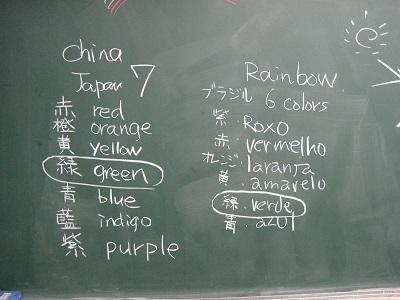 China
Japan 7
赤 red
橙 orange
黄 yellow
緑 green
青 blue
藍 indigo
紫 purple
Rainbow
ブラジル 6 colors
紫. Roxo
赤. vermelho
オレンジ. laranja
黄. amarelo
緑. verde
青. azul